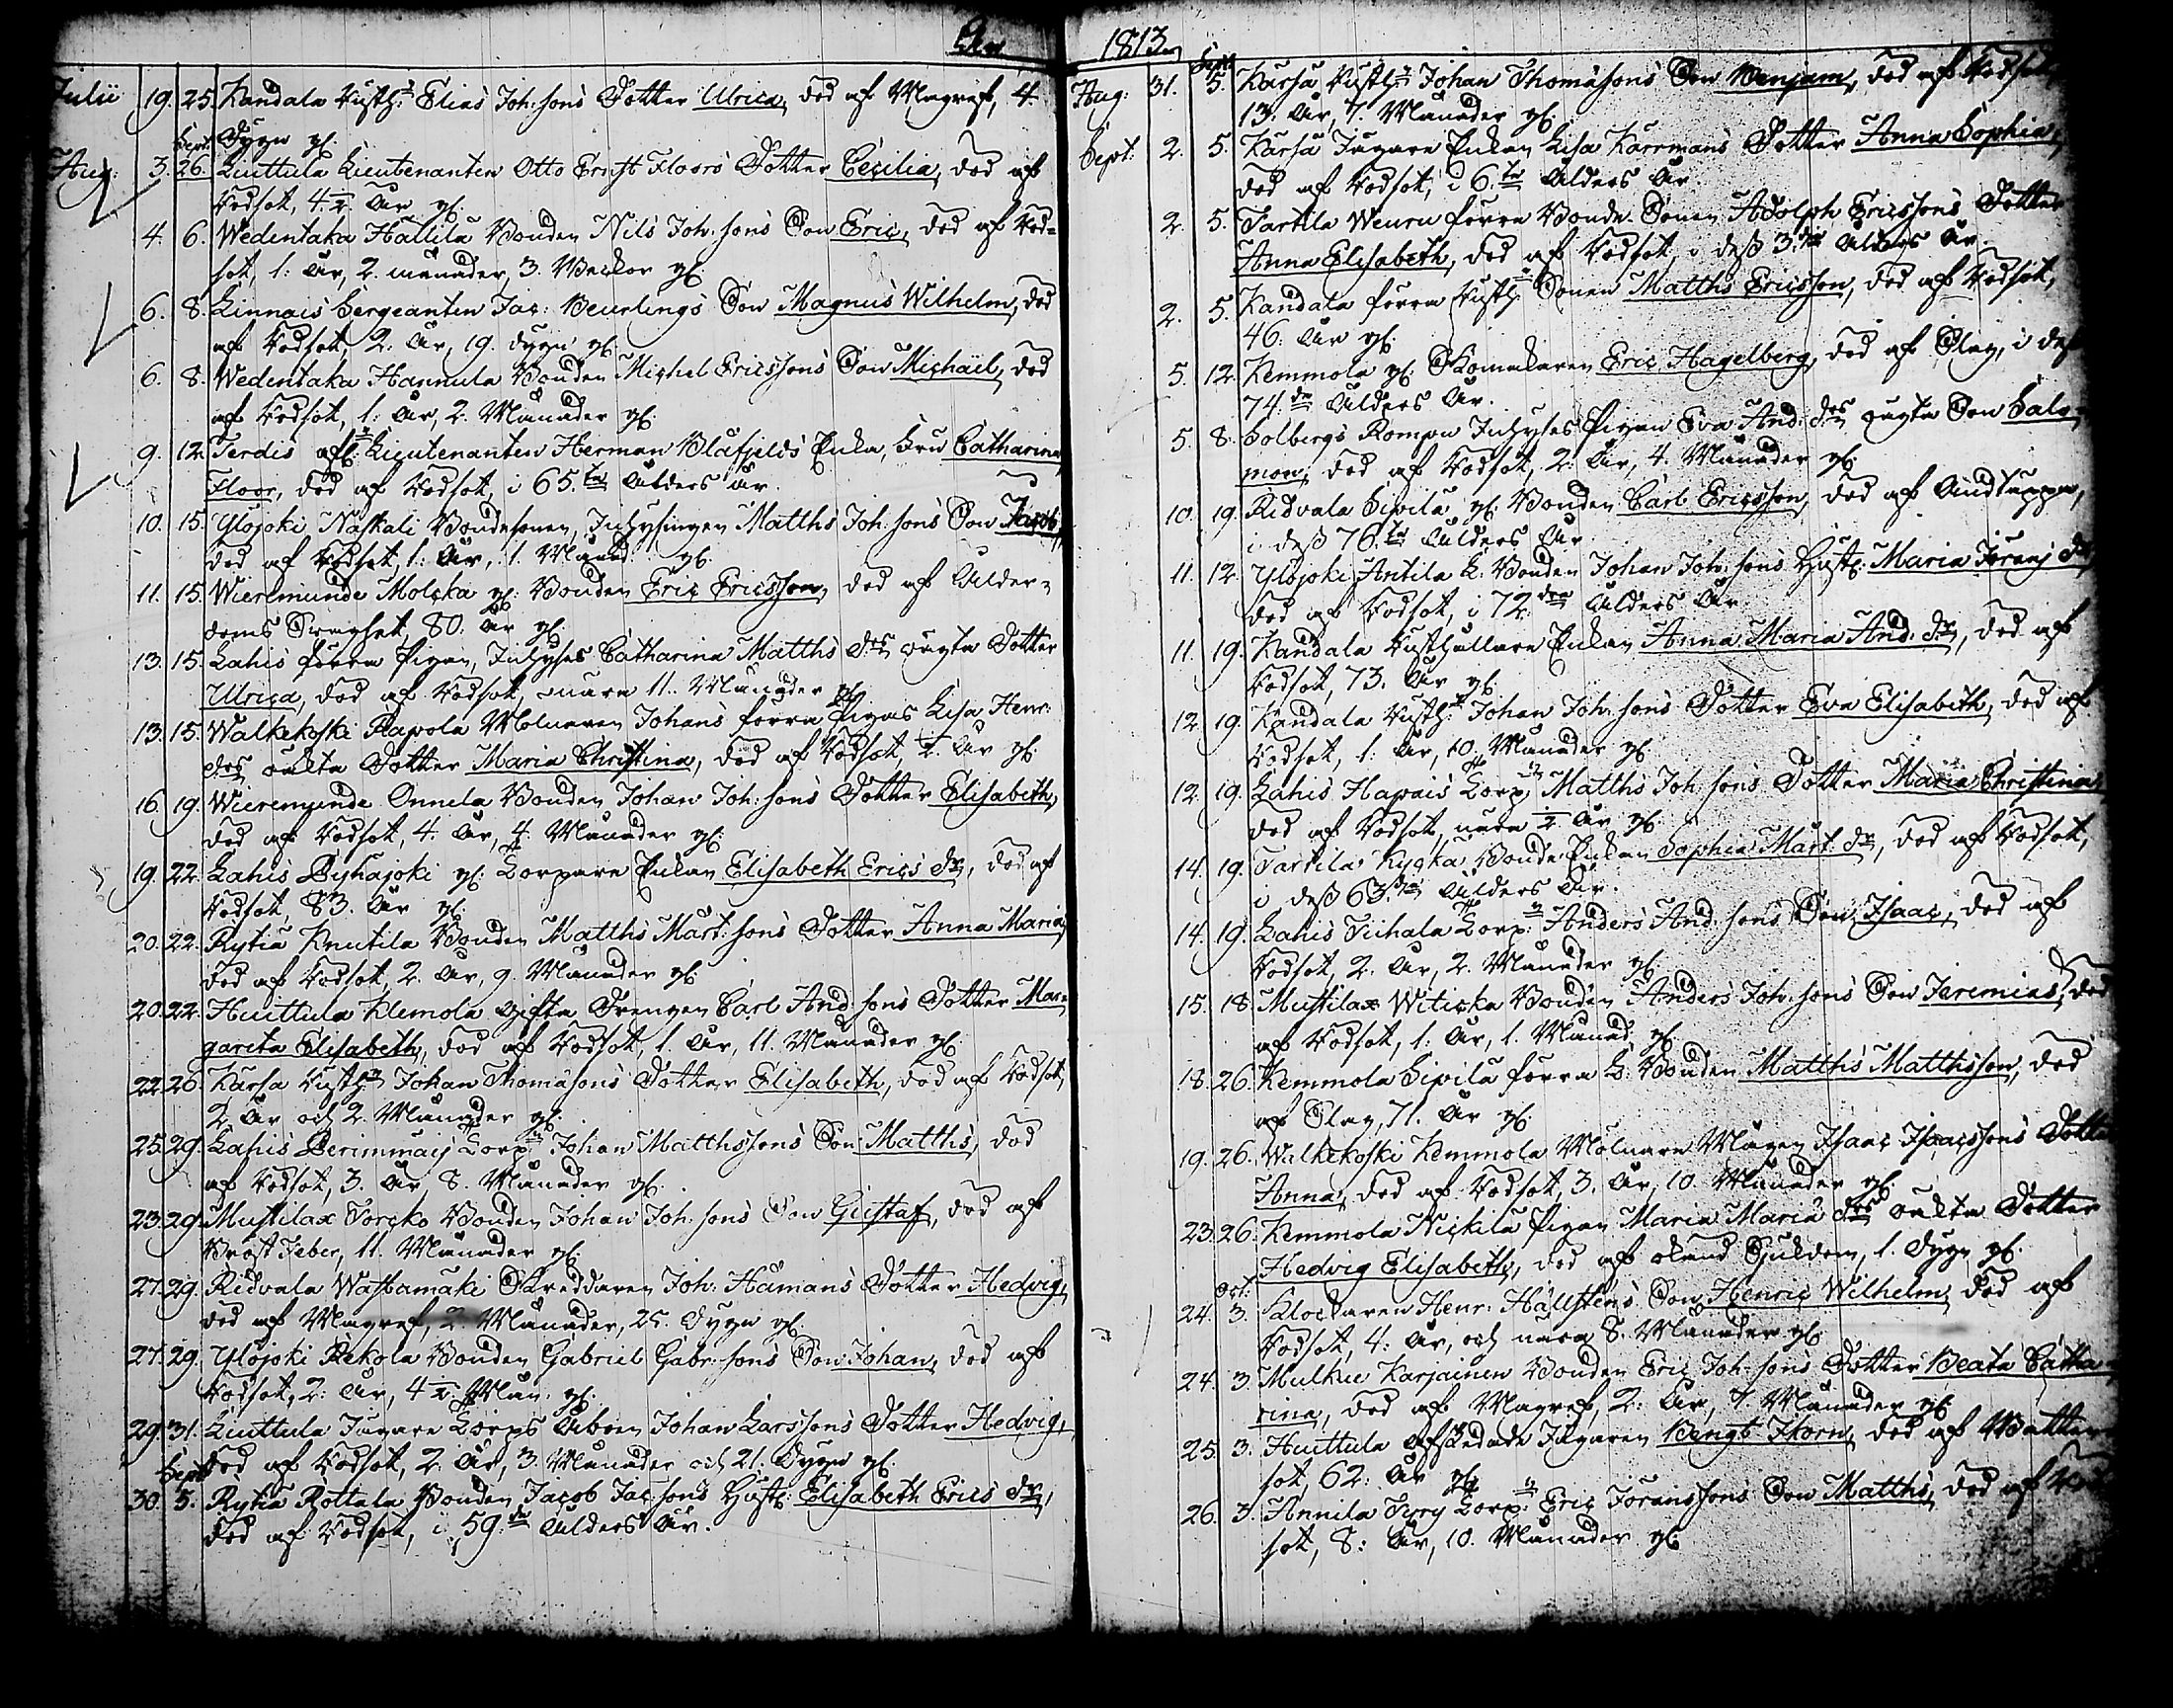 År
Julii 19. 25. Kandala Rusth: Elias Joh:sons Dotter Ulrica, död af Magref, 4.
Dygn gl.
Sept:
Aug: 3. 26. Huittula Lieutenanten Otto Ernst Floors Dotter Cecilia, död af
Rödsot, 4 1/2 År gl.
4. 6. Wedentaka Hallila Bonden Nils Joh:sons Son Eric, död af Röd=
sot, 1: År, 2. månader, 3. Veckor gl.
6. 8. Linnais Sergeanten Jac: Beurlings Son Magnus Wilhelm, död
af Rödsot, 2: År, 19. dygn gl.
6. 8. Wedentaka Hannula Bonden Michel Ericssons Son Michäel, död
af Rödsot, 1: År, 2. Månader gl.
9. 12. Jerdis afl: Lieutenanten Herman Blåfjelds Enka, Fru Catharina
Floor, död af Rödsot, i 65.te Ålders år.
10. 15. Ylöjoki Naskali Bondesonen, Inhysingen Matths Joh:sons Son Jacob,
död af Rödsot, 1: År, 1. Månad gl.
11. 15. Wieremunde Molcka gl: Bonden Eric Ericsson, död af Ålder=
doms Svaghet, 80. År gl.
13. 15. Lahis förra Pigan, Inhyses Catharina Matths drs oägta Dotter
Ulrica, död af Rödsot, nära 11. Månader gl.
13. 15. Walkekoski Rapola Molnaren Johans förra Pigas Lisa Henr:
drs oäkta Dotter Maria Christina, död af Rödsot, 1/2 År gl.
16. 19. Wieremunde Onnela Bonden Johan Joh:sons Dotter Elisabeth,
död af Rödsot, 4. År, 4. Månader gl.
19. 22. Lahis Pyhäjoki gl: Torpare Enkan Elisabeth Erics dr, död af
Rödsot, 83. År gl.
20. 22. Rytiä Knutila Bonden Matths Mårt:sons Dotter Anna Maria,
död af Rödsot, 2. År, 9. Månader gl.
20. 22. Huittula Klemola gifta Drengen Carl And:sons Dotter Mar=
gareta Elisabeth, död af Rödsot, 1. År, 11. Månader gl.
22. 26. Karsa Rusth: Johan Thomæsons Dotter Elisabeth, död af Rödsot,
2. År och 2. Månader gl.
25. 29. Lahis Perimmäis Torp: Johan Matthssons Son Matths, död
af Rödsot, 3. År, 8. Månader gl.
23. 29. Mustilax Torcko Bonden Johan Joh:sons Son Gustaf, död af
Bröst Feber, 11. Månader gl.
27. 29. Ridvala Wastamäki Skreddaren Joh: Hämans Dotter Hedvig,
död af Magref, 2. Månader, 25. Dygn gl.
27. 29. Ylöjoki Rekola Bonden Gabriel Gabr:sons Son Johan, död af
Rödsot, 2: År, 4 1/2 Mån: gl.
29. 31. Huittula Jägare Torps Åboen Johan Larssons Dotter Hedvig,
död af Rödsot, 2. År, 3. Månader och 21. Dygn gl.
Sept:
30. 5. Rytiä Rottala Bonden Jacob Jac:sons Hustr: Elisabeth Erics dr,
död af Rödsot, i 59.de Ålders År.
1813
Sept:
Aug: 31. 5. Karsa Rusth: Johan Thomæsons Son Benjam, död af Rödsot,
13. År, 7. Månader gl.
Sept: 2. 5. Karsa Jägare Enkan Lisa Karrmans Dotter Anna Sophia,
död af Rödsot, i 6.te Ålders År
2. 5. Tartila Weuru förra Bonde Sonen Adolph Ericssons Dotter
Anna Elisabeth, död af Rödsot, i dess 3.dje Ålders År.
2. 5. Kandala förra Rusth: Sonen Matths Ericsson, död af Rödsot,
46. År gl.
5. 12. Kemmola gl: Skomakaren Eric Hagelberg, död af Slag, i dess
74.de Ålders År.
5. 8. Solbergs Rompu Inhyses Pigan Eva And: drs oägta Son Salo=
mon, död af Rödsot, 2: År, 4. Månader gl.
10. 19. Ridvala Sipilä gl: Bonden Carl Ericsson, död af Andtäppa,
i dess 76.te Ålders År
11. 12. Ylöjoki Antila L: Bonden Johan Joh:sons Hustr: Maria Jöransdr
död af Rödsot, i 72.dra Ålders År
11. 19. Kandala Rusthållare Enkan Anna Maria And: dr, död af
Rödsot, 73. År gl.
12. 19. Kandala Rusth: Johan Joh:sons Dotter Eva Elisabeth, död af
Rödsot, 1: År, 10. Månader gl.
12. 19. Lahis Hapais Torp: Matths Joh:sons Dotter Maria Christina
död af Rödsot, nära 1/2 År gl.
14. 19. Tartila Kycka Bonde Enkan Sophia Mårt: dr, död af Rödsot,
i dess 63.dje Ålders År.
14. 19. Lahis Tichala Torp: Anders And:sons Son Isaac, död af
Rödsot, 2. År, 2. Månader gl.
15. 18. Mustilax Witicka Bonden Anders Joh:sons Son Jeremias, död
af Rödsot, 1: År, 1. Månad gl.
18. 26. Kemmola Sipilä förra L: Bonden Matths Matthsson, död
af Slag, 71. År gl.
19. 26. Walkekoski Kemmola Molnare Mågen Isaac Isaacssons Dotter
Anna, död af Rödsot, 3. År, 10. Månader gl.
23. 26. Kemmola Nickilä Pigan Maria Maria drs oäkta Dotter
Hedvig Elisabeth, död af okänd Sjukdom, 1. Dygn gl.
Oct:
24. 3. Klockaren Henr: Hällstens Son Henric Wilhelm, död af
Rödsot, 4: År, och nära 8. Månader gl.
24. 3. Mulkue Karjainen Bonden Eric Joh:sons Dotter Beata Catha=
rina, död af Magref, 2: År, 7. Månader gl.
25. 3. Huittula Afskedade Jägaren Bengt Thorn, död af Watten
sot, 62: År gl.
26. 3. Annila Jyry Torp: Eric Jöranssons Son Matths, död af Röd
sot, 8: År, 10. Månader gl.